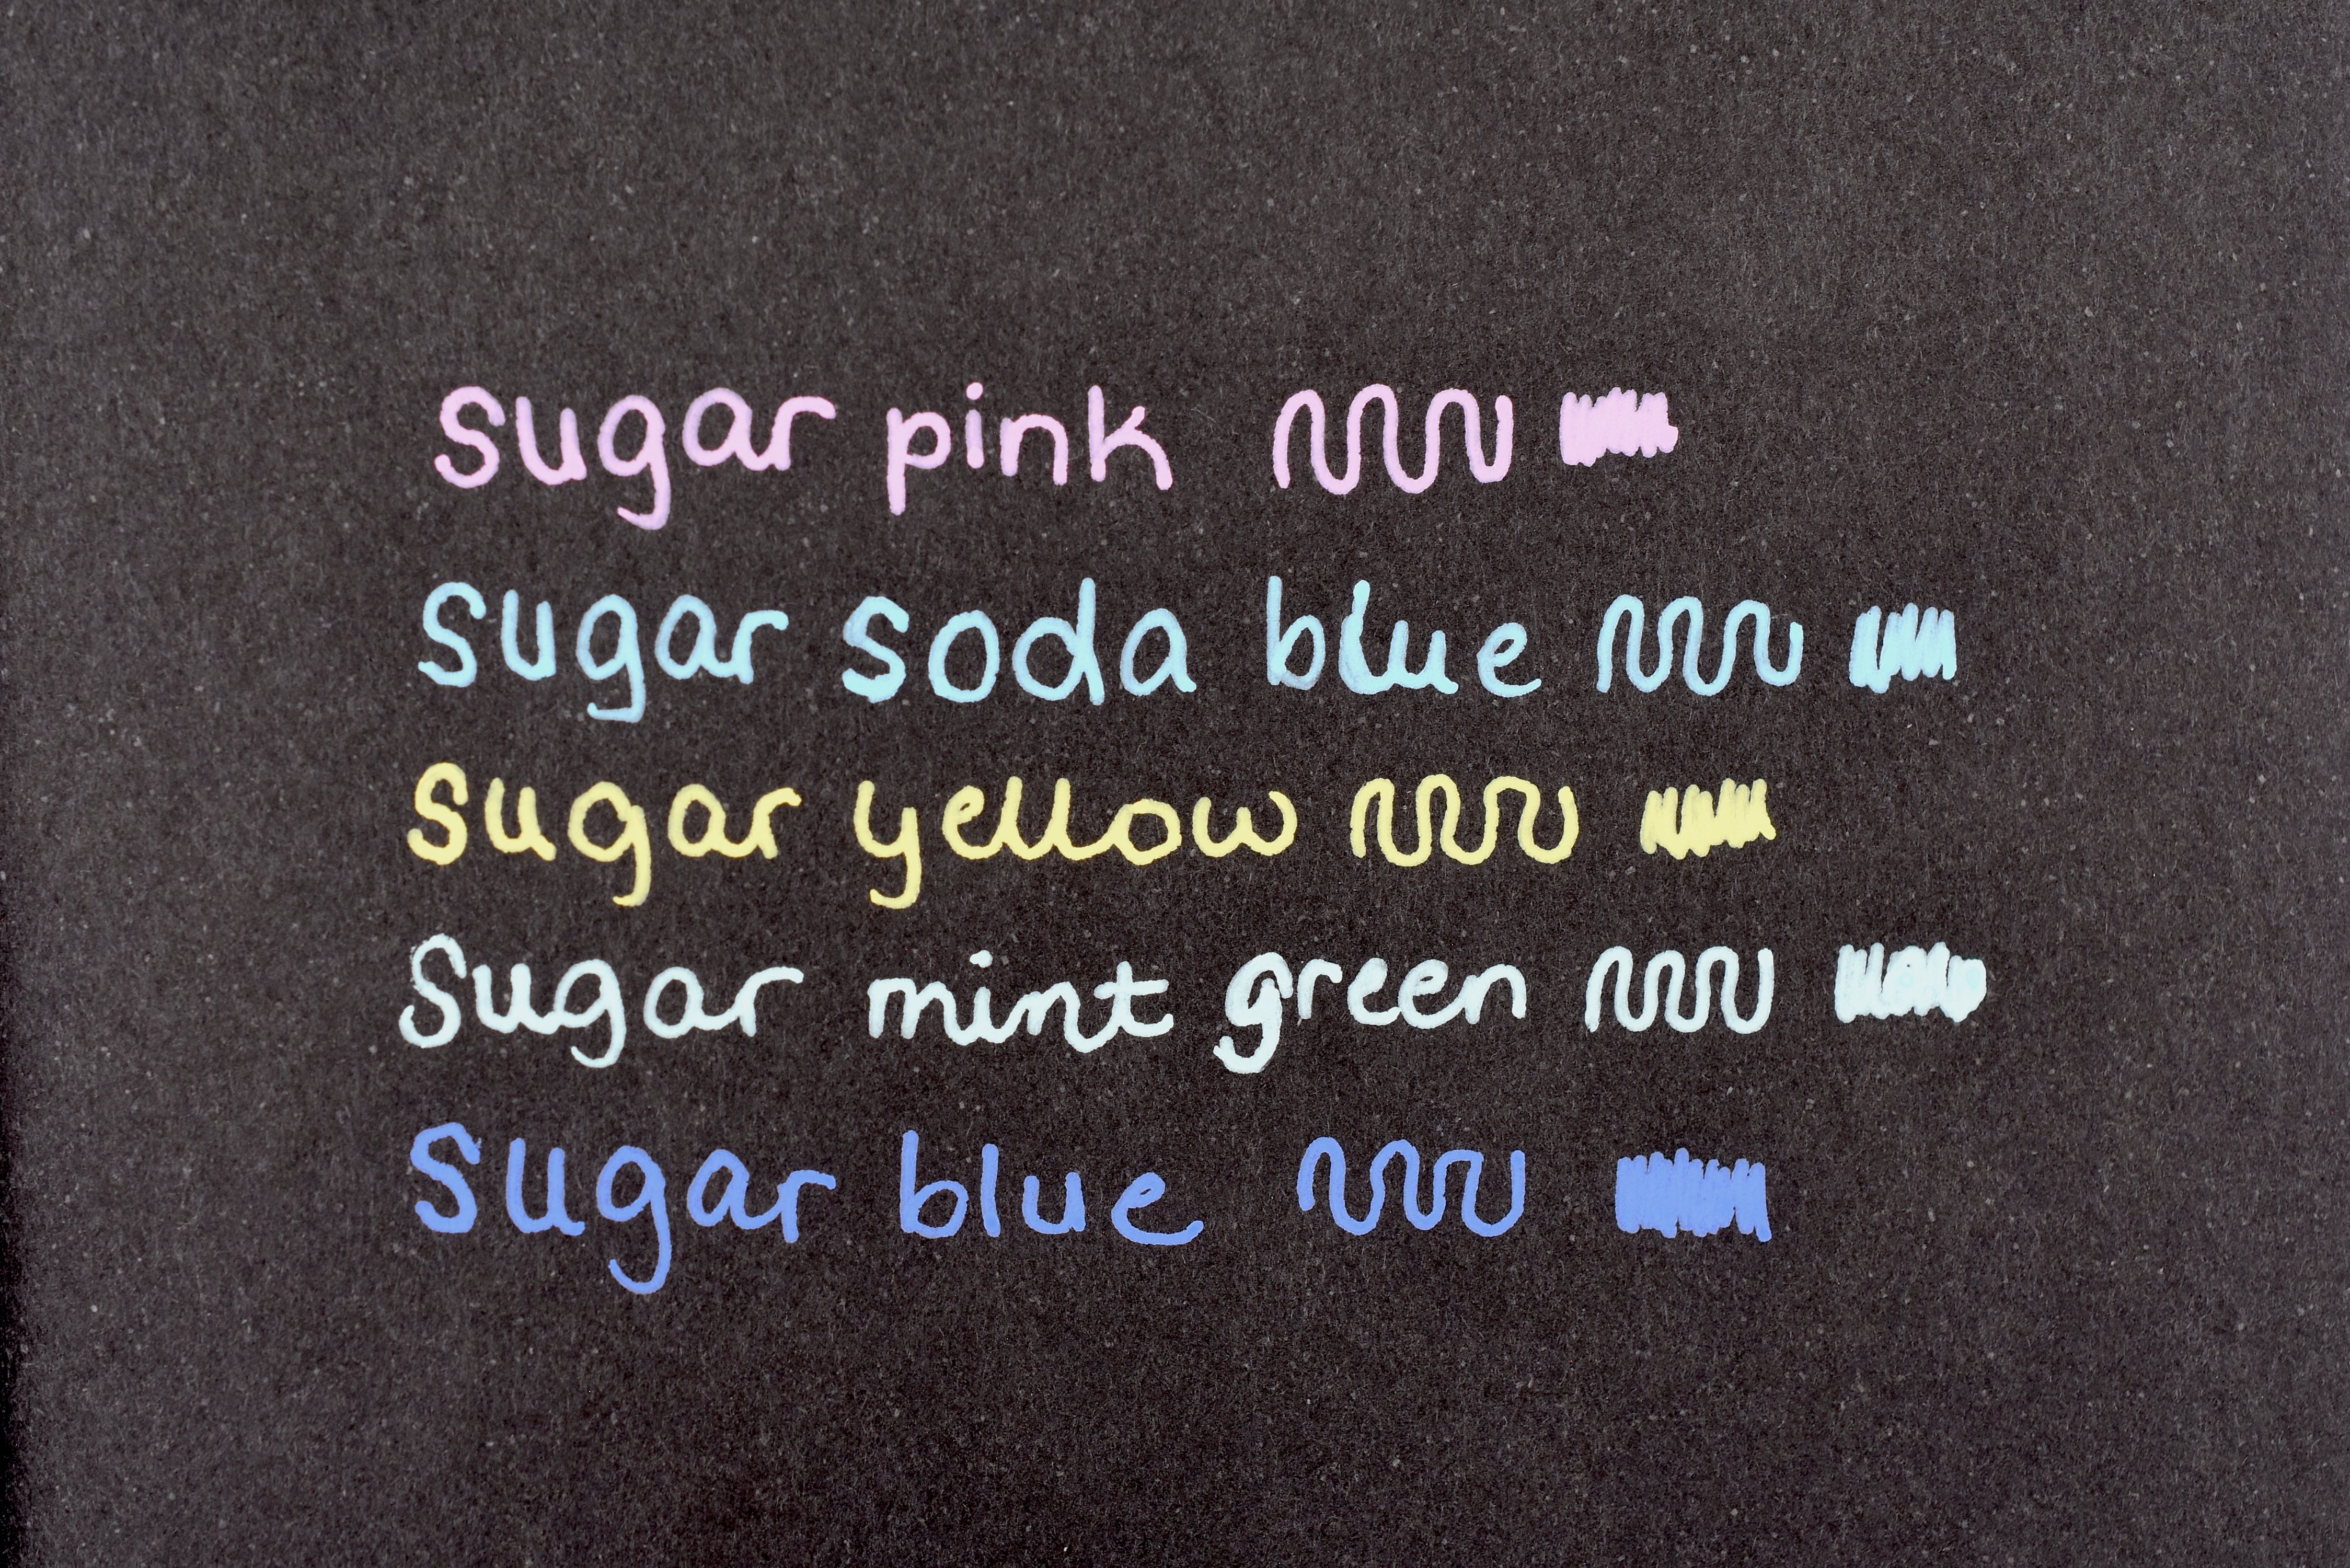 sugar pink
sugar soda blue
sugar yellow
sugar mint green
sugar blue